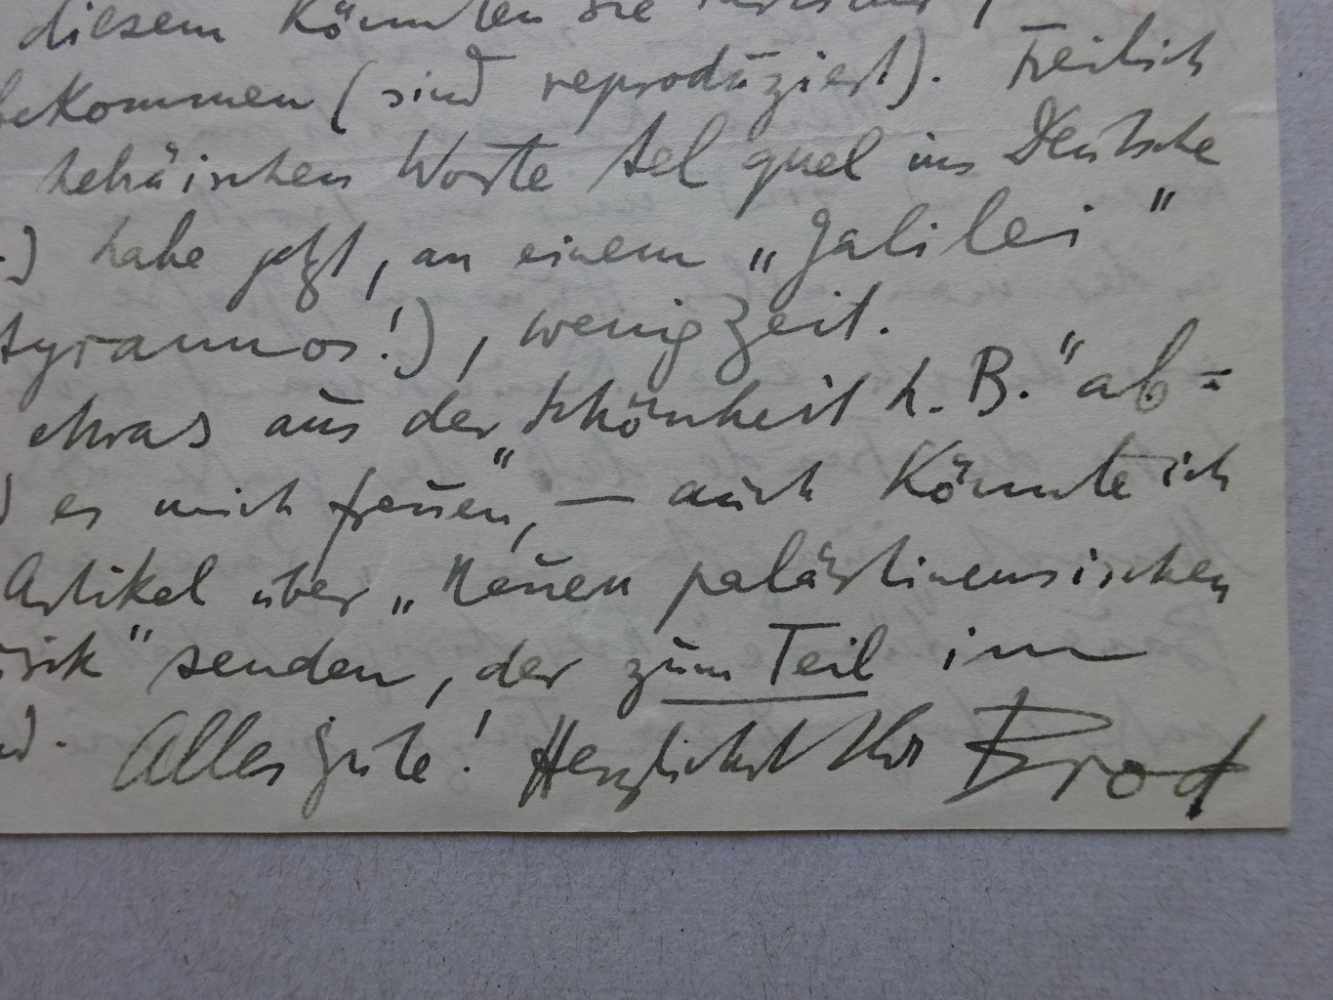 diesem könnten Sie
bekommen (sind reproduziert). Freilich
hebräischen Worte tel quel ins Deutsche
.) habe jetzt, an einem „Galilei"
tyrannos!), wenig Zeit.
etwas aus der „Schönheit h. B." ab=
) es mich freuen, — auch könnte ich
Artikel über „Neuen palästinensischen
usik" senden, der zum Teil im
nd. Alles Gute! Herzlichst Ihr Brod